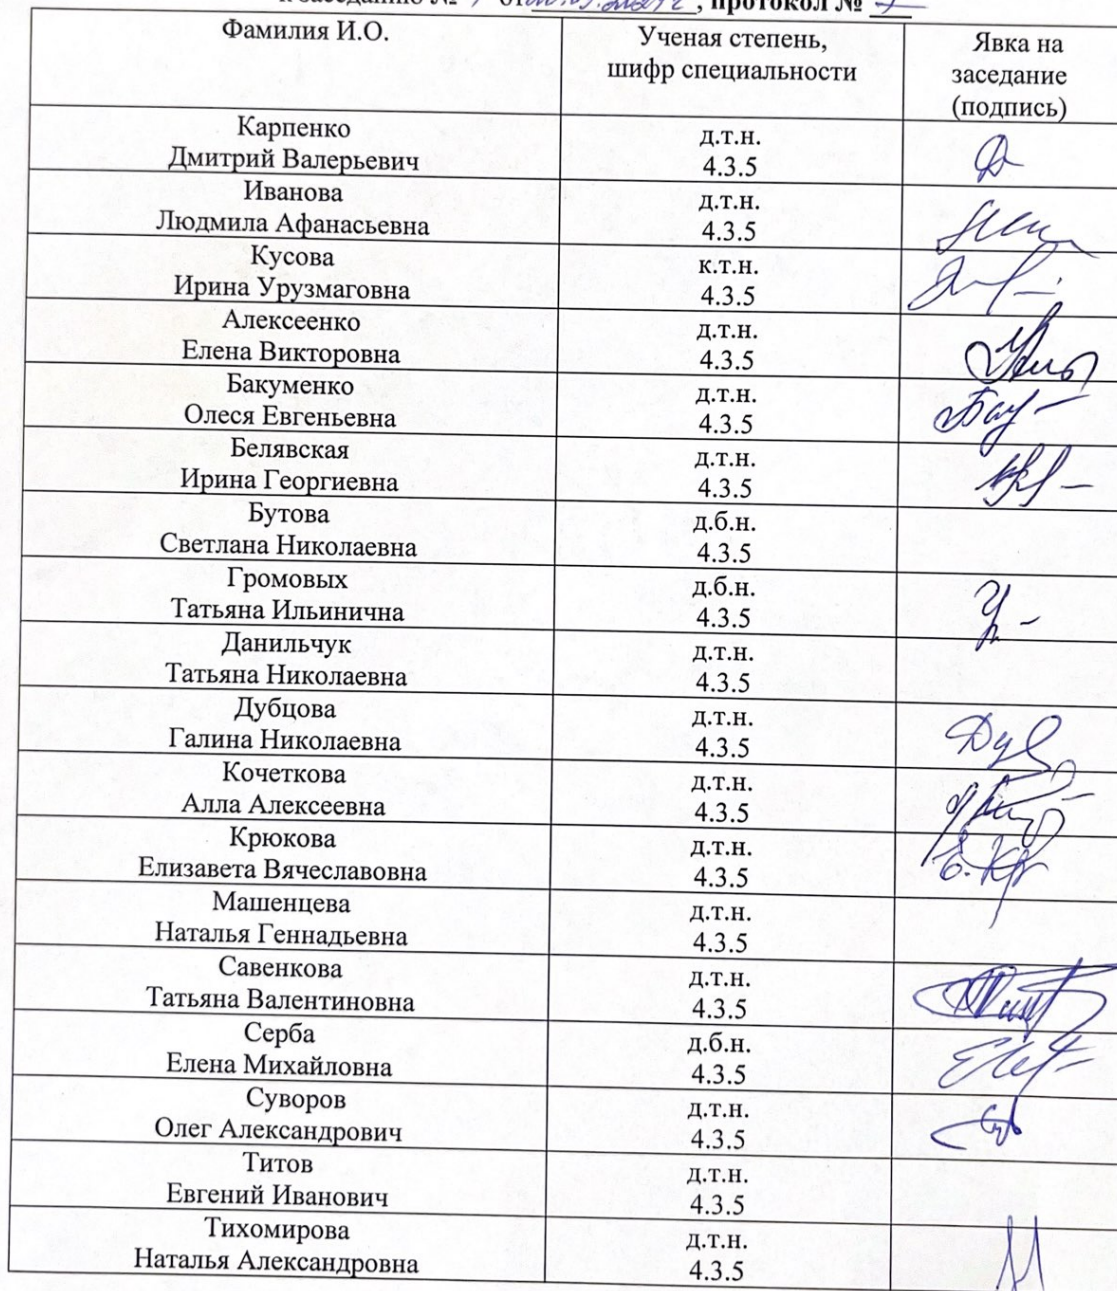 к заседанию № от , протокол №
Фамилия И.О.
Ученая степень,
шифр специальности
Явка на
заседание
(подпись)
Карпенко
Дмитрий Валерьевич
д.т.н.
4.3.5
Иванова
Людмила Афанасьевна
д.т.н.
4.3.5
Кусова
Ирина Урузмаговна
к.т.н.
4.3.5
Алексеенко
Елена Викторовна
д.т.н.
4.3.5
Бакуменко
Олеся Евгеньевна
д.т.н.
4.3.5
Белявская
Ирина Георгиевна
д.т.н.
4.3.5
Бутова
Светлана Николаевна
д.б.н.
4.3.5
Громовых
Татьяна Ильинична
д.б.н.
4.3.5
Данильчук
Татьяна Николаевна
д.т.н.
4.3.5
Дубцова
Галина Николаевна
д.т.н.
4.3.5
Кочеткова
Алла Алексеевна
д.т.н.
4.3.5
Крюкова
Елизавета Вячеславовна
д.т.н.
4.3.5
Машенцева
Наталья Геннадьевна
д.т.н.
4.3.5
Савенкова
Татьяна Валентиновна
д.т.н.
4.3.5
Серба
Елена Михайловна
д.б.н.
4.3.5
Суворов
Олег Александрович
д.т.н.
4.3.5
Титов
Евгений Иванович
д.т.н.
4.3.5
Тихомирова
Наталья Александровна
д.т.н.
4.3.5